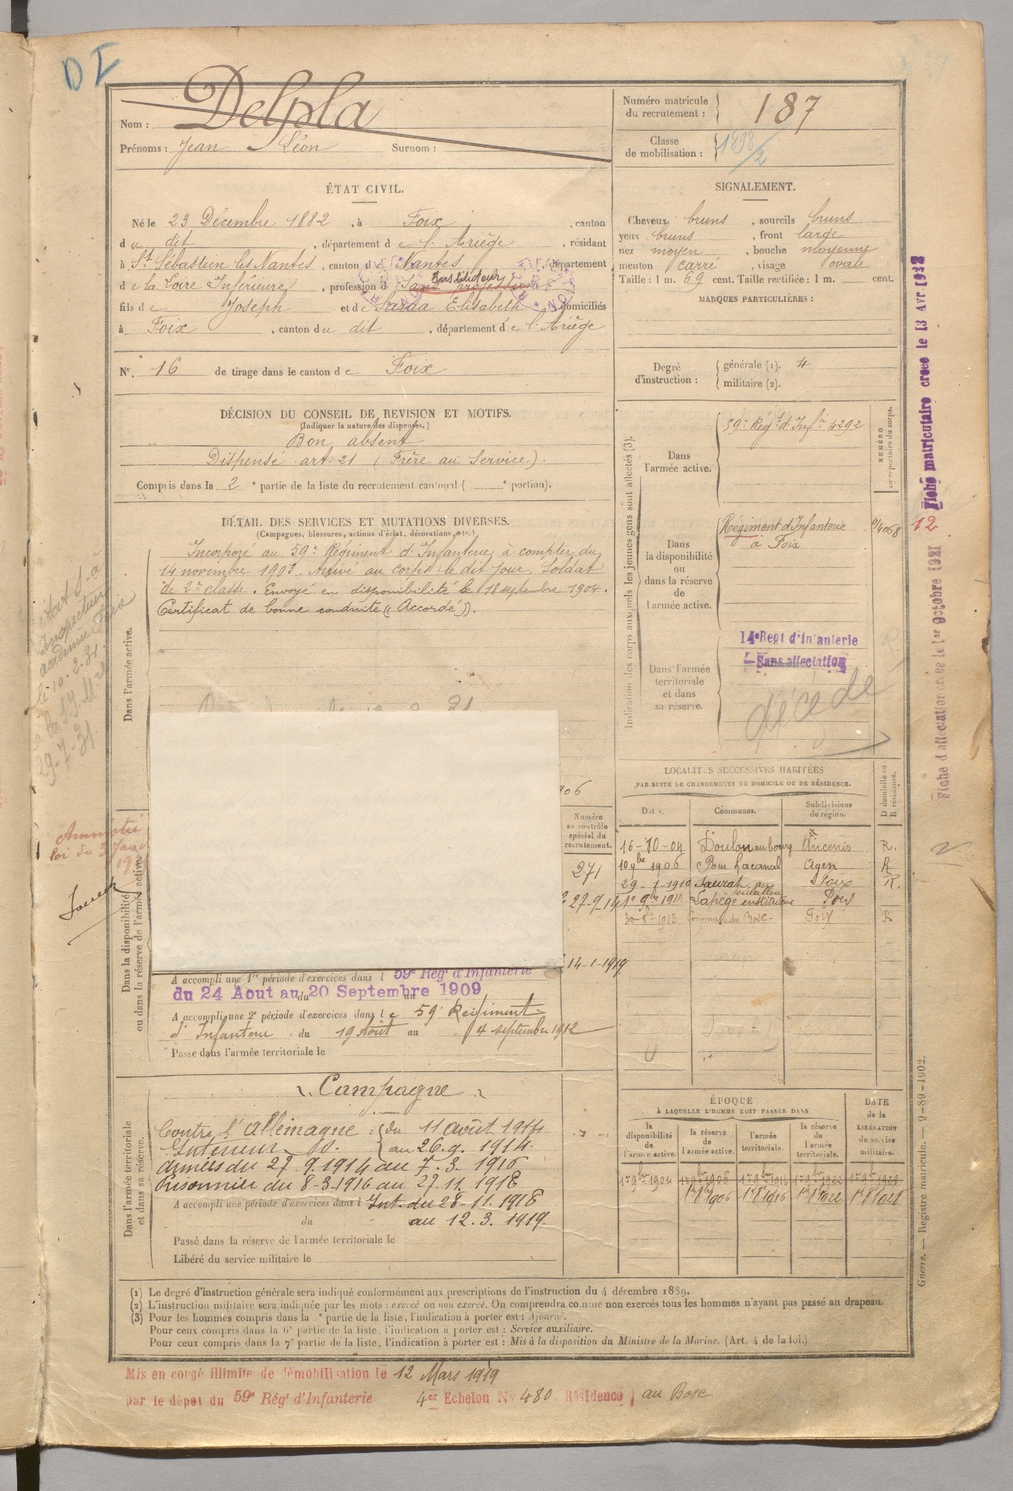 DI
Nom : Delpla
Prénoms : Jean Léon Surnom :
Numéro matricule du recrutement : 187
Classe de mobilisation : 1898/2
ÉTAT CIVIL.
Né le 23 Décembre 1882, à Foix, canton
du dit, département de l'Ariège, résidant
à St Sébastien les Nantes, canton de Nantes, département
de la Loire Inférieure, profession d Sans profession Instituteur
fils de Joseph et de Sarda Elisabeth domiciliés
à Foix, canton du dit, département de l'Ariège
N° 16 de tirage dans le canton de Foix
SIGNALEMENT.
Cheveux bruns, sourcils bruns
yeux bruns, front large
nez moyen, bouche moyenne
menton carré, visage ovale
Taille : 1 m. 69 cent. Taille rectifiée : 1 m. cent.
MARQUES PARTICULIÈRES :
Degré d'instruction : générale (1). 4
militaire (2).
DÉCISION DU CONSEIL DE REVISION ET MOTIFS.
(Indiquer la nature des dispenses.)
Bon absent
Dispensé art. 21 (Frère au Service).
Compris dans la 2e partie de la liste du recrutement cantonal ( e portion).
DÉTAIL DES SERVICES ET MUTATIONS DIVERSES.
(Campagnes, blessures, actions d'éclat, décorations, etc.)
Incorporé au 59e Régiment d'Infanterie à compter du
14 novembre 1903. Arrivé au corps le dit jour, Soldat
de 2e classe. Envoyé en disponibilité le 18 septembre 1904.
Certificat de bonne conduite (Accordé).
Dans l'armée active.
Indication des corps auxquels les jeunes gens sont affectés (3).
NUMÉRO au répertoire du corps.
Dans l'armée active. 59e Régt d'Infie 4292
Dans la disponibilité ou dans la réserve de l'armée active. Régiment d'Infanterie à Foix
Dans l'armée territoriale et dans sa réserve. 14e Regt d'Infanterie
Sans affectation
décédé
Fiche matriculaire créée le 13 Avr
12
Fiche d'affectation créée le 1er Octobre 1921
Inspecteur
académie
10-2-31
29-7-31
Amnistié
loi du 3 Janv
LOCALITÉS SUCCESSIVES HABITÉES
PAR SUITE DE CHANGEMENTS DE DOMICILE OU DE RÉSIDENCE.
Dates. Communes. Subdivisions de région. D domicile ou R résidence.
16-10-04 Doulon au bourg Ancenis R.
10 9bre 1906 Agen R
29-1-1910 Saurat Foix R.
1er 9bre 1911 Lapège instituteur Foix
1913 Foix R
Numéro au contrôle spécial du recrutement.
271
27-9-14
14-1-1919
Dans la disponibilité ou dans la réserve de l'armée active
A accompli une 1re période d'exercices dans l 59e Reg d'Infanterie
du 24 Aout au 20 Septembre 1909
A accompli une 2e période d'exercices dans le 59e Régiment
d'Infanterie du 19 Août au 4 septembre 1912
Passé dans l'armée territoriale le
Dans l'armée territoriale et dans sa réserve.
Campagne
Contre l'Allemagne : du 11 août 1914
Intérieur au 26.9.1914
Armées du 27.9.1914 au 7.3.1916
Prisonnier du 8-3-1916 au 27.11.1918
A accompli une période d'exercices dans l Int. du 28-11-1918
du au 12.3.1919.
Passé dans la réserve de l'armée territoriale le
Libéré du service militaire le
ÉPOQUE
À LAQUELLE L'HOMME DOIT PASSER DANS
DATE de la LIBÉRATION du service militaire.
la disponibilité de l'armée active. la réserve de l'armée active. l'armée territoriale. la réserve de l'armée territoriale.
1er 9bre 1904
(1) Le degré d'instruction générale sera indiqué conformément aux prescriptions de l'instruction du 4 décembre 1889.
(2) L'instruction militaire sera indiquée par les mots : exercé ou non exercé. On comprendra comme non exercés tous les hommes n'ayant pas passé au drapeau.
(3) Pour les hommes compris dans la e partie de la liste, l'indication à porter est : Ajourné.
Pour ceux compris dans la 6e partie de la liste, l'indication à porter est : Service auxiliaire.
Pour ceux compris dans la 7e partie de la liste, l'indication à porter est : Mis à la disposition du Ministre de la Marine. (Art. 4 de la loi.)
Guerre. — Registre matricule. — 9-89-1902.
Mis en congé illimité de démobilisation le 12 Mars 1919
par le dépôt du 59e Régt d'Infanterie 4er Echelon No 480 Résidence au Bosc